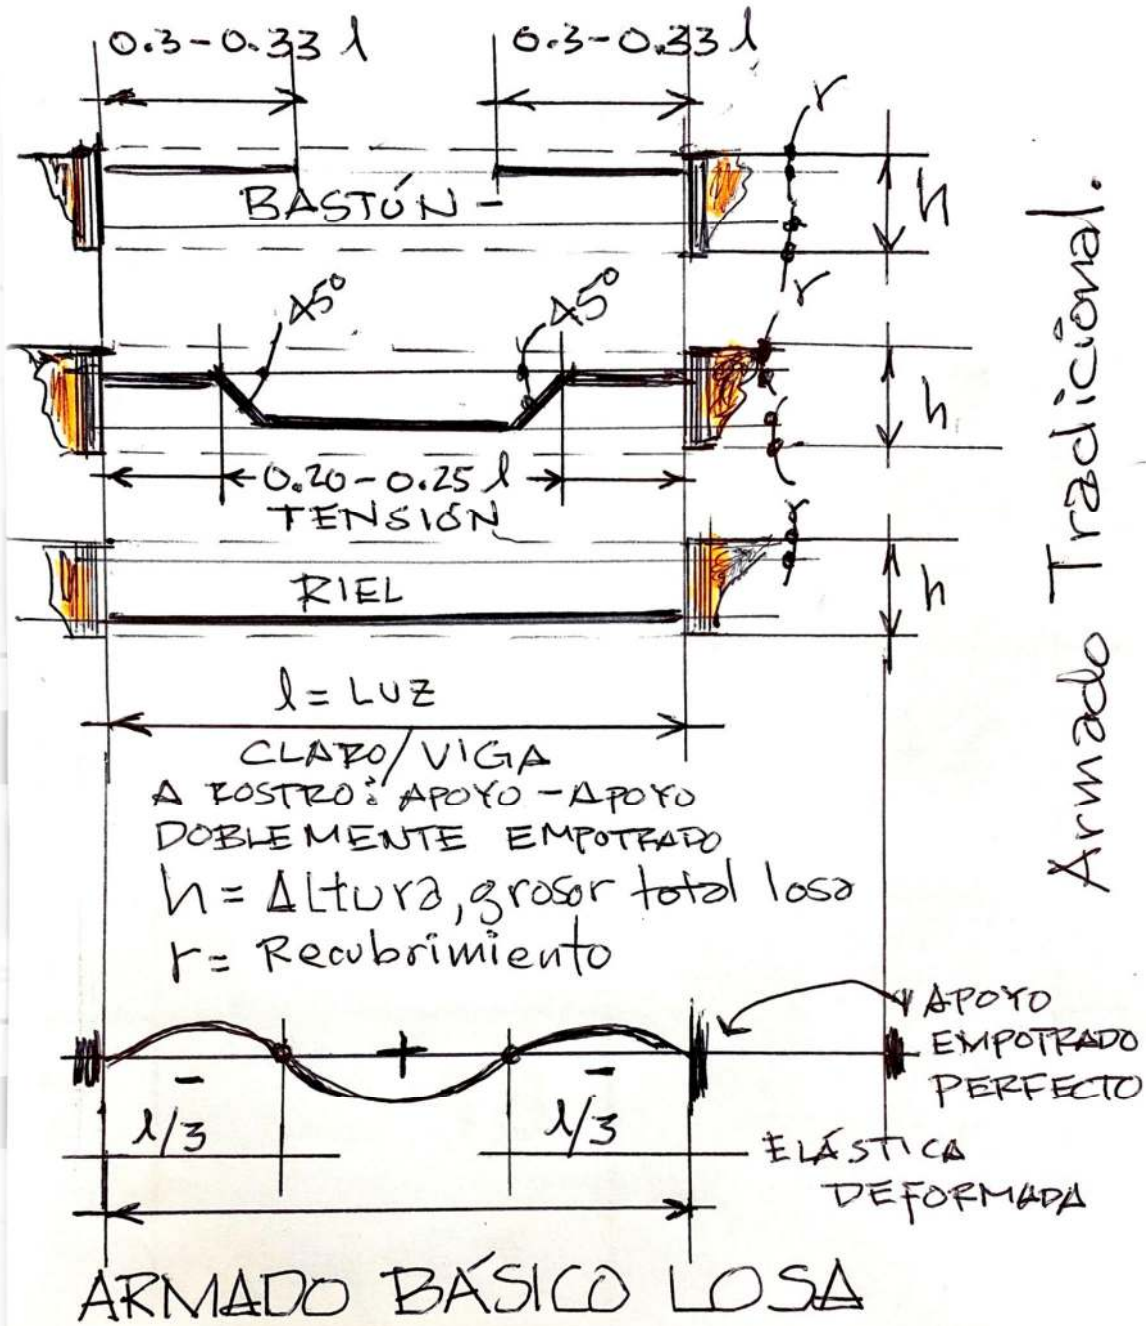 0.3-0.33 l
0.3-0.33 l
r
BASTÓN -
h
r
45°
45°
h
0.20-0.25 l
TENSIÓN
r
RIEL
h
l = LUZ
CLARO/VIGA
A ROSTRO: APOYO-APOYO
DOBLEMENTE EMPOTRADO
h = Altura, grosor total losa
r = Recubrimiento
Armado Tradicional.
APOYO
EMPOTRADO
PERFECTO
- + -
l/3
l/3
ELÁSTICA
DEFORMADA
ARMADO BÁSICO LOSA